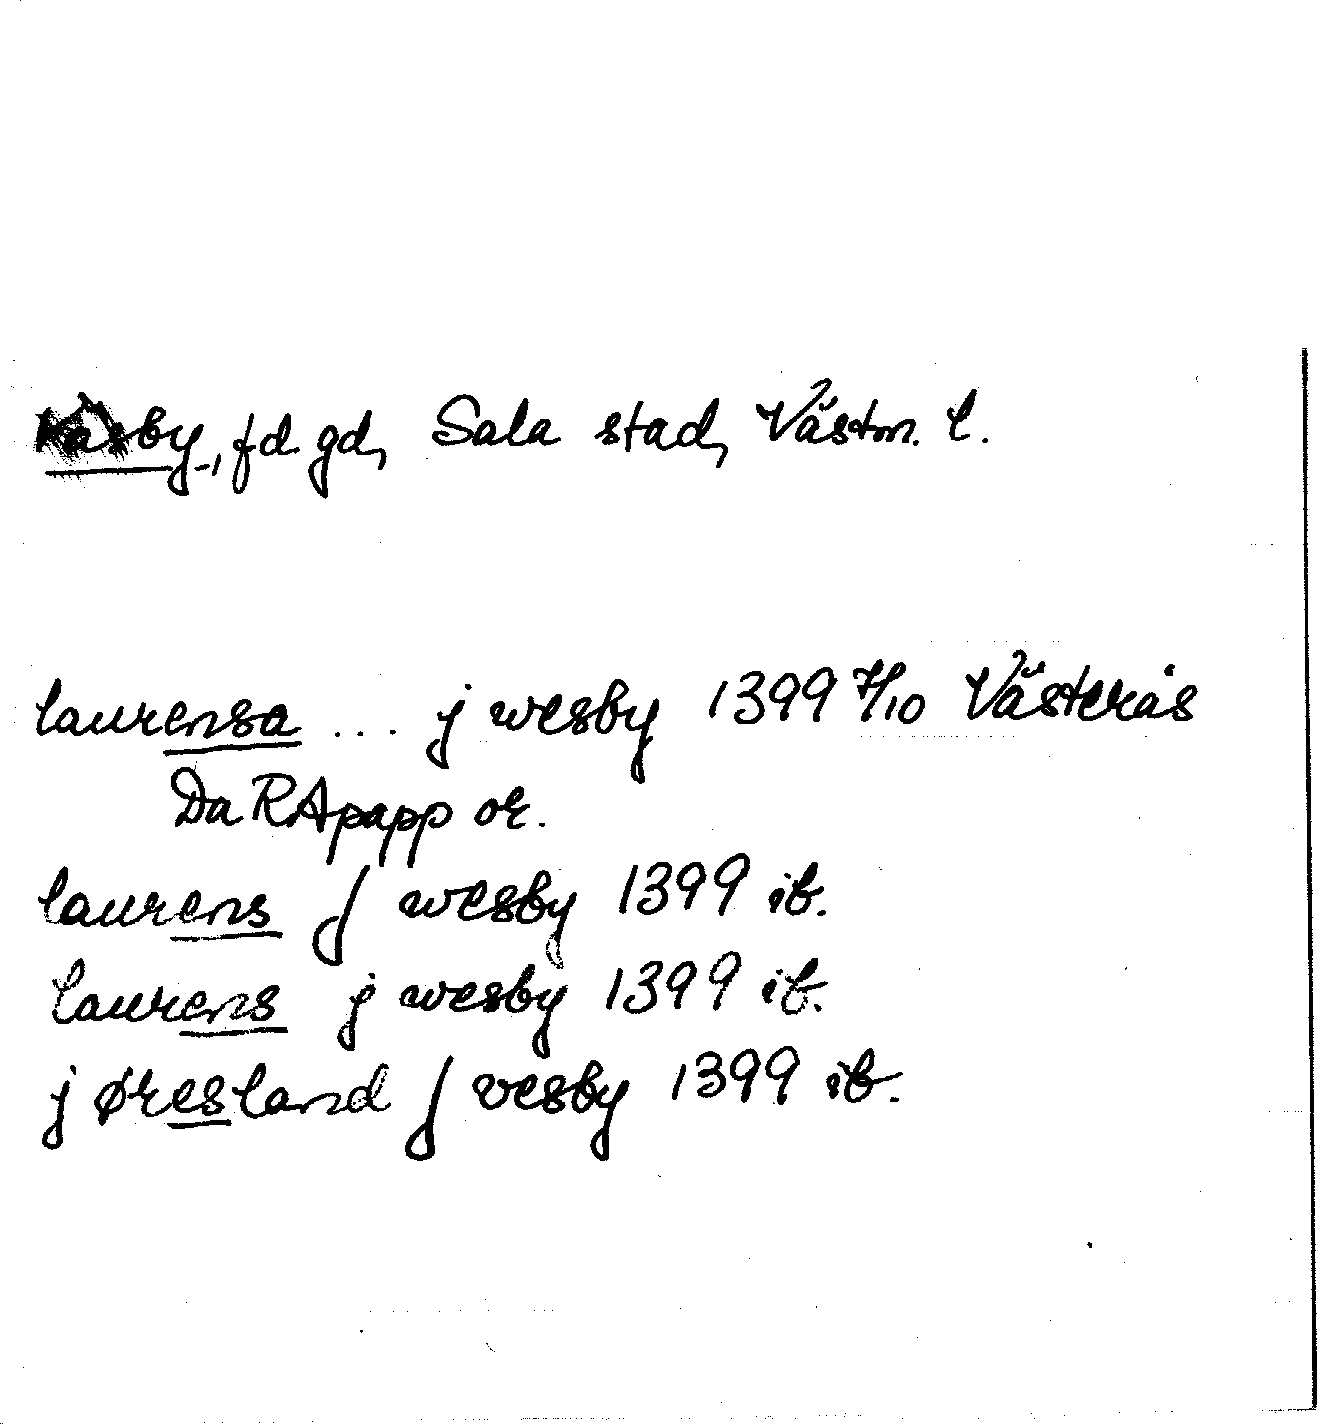 Väsby, fd gd, Sala stad, Västm. l.
laurensa ... j wesby 1399 7/10 Västerås
Da RApapp or.
laurens j wesby 1399 ib.
laurens j wesby 1399 ib.
j øresland j vesby 1399 ib.